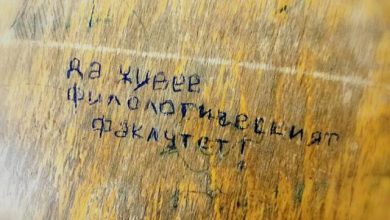 да живее
филологическият
факлутет!